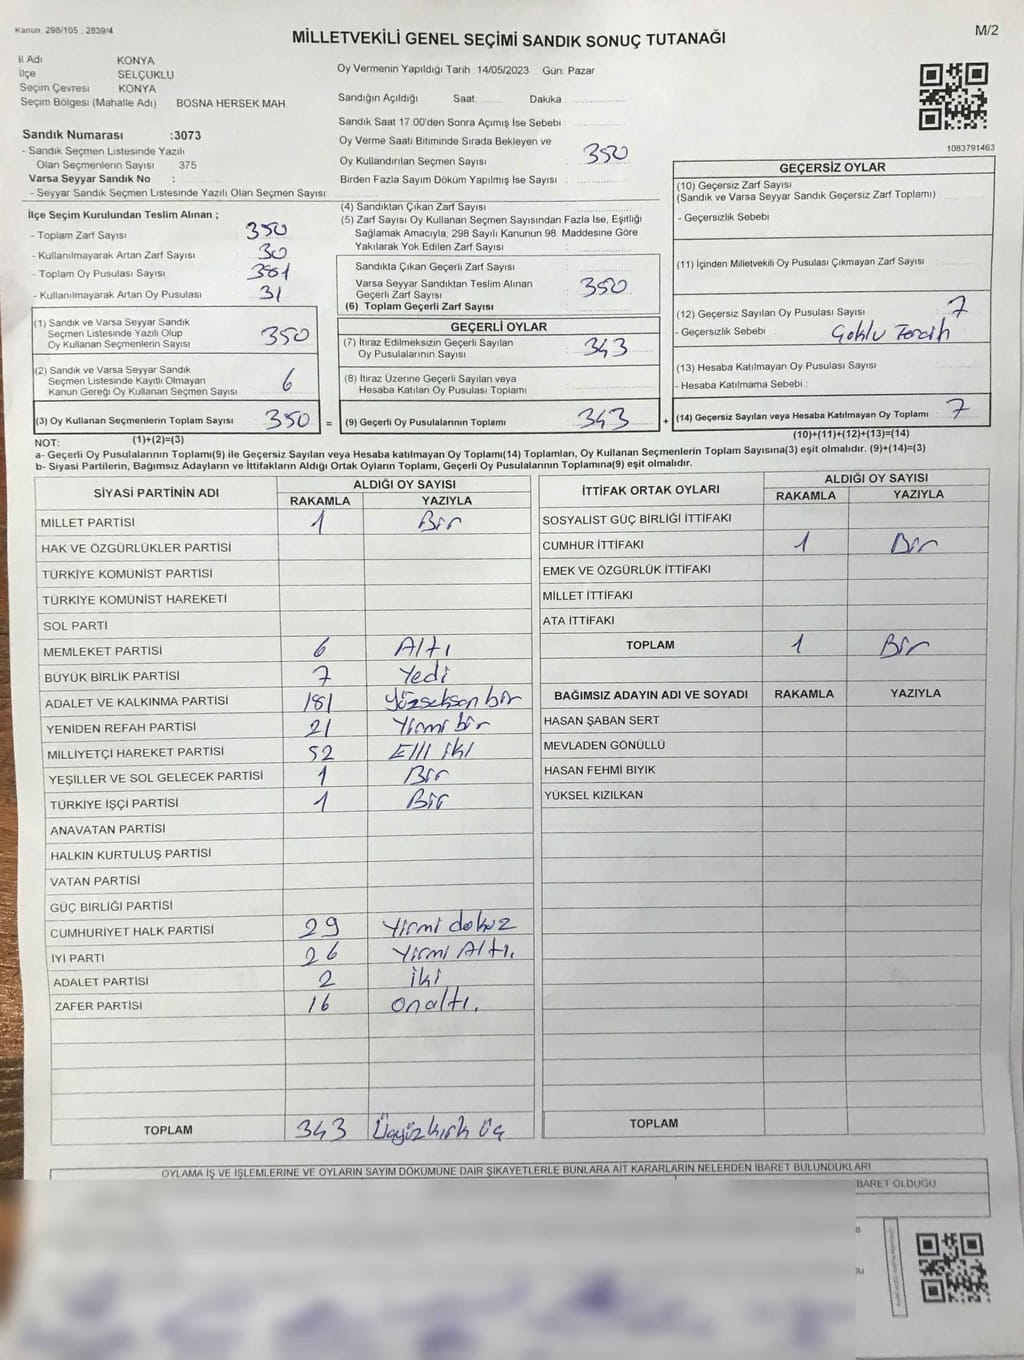 Kanun, 298/105 , 2839/4
MİLLETVEKİLİ GENEL SEÇİMİ SANDIK SONUÇ TUTANAĞI
M/2
İl Adı KONYA
İlçe SELÇUKLU
Seçim Çevresi KONYA
Seçim Bölgesi (Mahalle Adı) BOSNA HERSEK MAH.
Sandık Numarası :3073
- Sandık Seçmen Listesinde Yazılı
Olan Seçmenlerin Sayısı 375
Varsa Seyyar Sandık No :
- Seyyar Sandık Seçmen Listesinde Yazılı Olan Seçmen Sayısı:
Oy Vermenin Yapıldığı Tarih :14/05/2023 Gün: Pazar
Sandığın Açıldığı Saat: Dakika :
Sandık Saat 17:00'den Sonra Açımış İse Sebebi :
Oy Verme Saati Bitiminde Sırada Bekleyen ve
Oy Kullandırılan Seçmen Sayısı : 350
Birden Fazla Sayım Döküm Yapılmış İse Sayısı :
1083791463
İlçe Seçim Kurulundan Teslim Alınan ;
- Toplam Zarf Sayısı 350
- Kullanılmayarak Artan Zarf Sayısı : 30
- Toplam Oy Pusulası Sayısı 381
- Kullanılmayarak Artan Oy Pusulası : 31
(1) Sandık ve Varsa Seyyar Sandık
Seçmen Listesinde Yazılı Olup
Oy Kullanan Seçmenlerin Sayısı 350
(2) Sandık ve Varsa Seyyar Sandık
Seçmen Listesinde Kayıtlı Olmayan
Kanun Gereği Oy Kullanan Seçmen Sayısı 6
(3) Oy Kullanan Seçmenlerin Toplam Sayısı 350 =
(4) Sandıktan Çıkan Zarf Sayısı :
(5) Zarf Sayısı Oy Kullanan Seçmen Sayısından Fazla İse, Eşitliği
Sağlamak Amacıyla, 298 Sayılı Kanunun 98. Maddesine Göre
Yakılarak Yok Edilen Zarf Sayısı :
Sandıkta Çıkan Geçerli Zarf Sayısı
Varsa Seyyar Sandıktan Teslim Alınan
Geçerli Zarf Sayısı 350
(6) Toplam Geçerli Zarf Sayısı
GEÇERLİ OYLAR
(7) İtiraz Edilmeksizin Geçerli Sayılan
Oy Pusulalarının Sayısı 343
(8) İtiraz Üzerine Geçerli Sayılan veya
Hesaba Katılan Oy Pusulası Toplamı
(9) Geçerli Oy Pusulalarının Toplamı 343 +
GEÇERSİZ OYLAR
(10) Geçersiz Zarf Sayısı
(Sandık ve Varsa Seyyar Sandık Geçersiz Zarf Toplamı) :
- Geçersizlik Sebebi :
(11) İçinden Milletvekili Oy Pusulası Çıkmayan Zarf Sayısı :
(12) Geçersiz Sayılan Oy Pusulası Sayısı : 7
- Geçersizlik Sebebi : Çoklu Tercih
(13) Hesaba Katılmayan Oy Pusulası Sayısı :
- Hesaba Katılmama Sebebi :
(14) Geçersiz Sayılan veya Hesaba Katılmayan Oy Toplamı : 7
NOT: (1)+(2)=(3)
(10)+(11)+(12)+(13)=(14)
a- Geçerli Oy Pusulalarının Toplamı(9) ile Geçersiz Sayılan veya Hesaba katılmayan Oy Toplamı(14) Toplamları, Oy Kullanan Seçmenlerin Toplam Sayısına(3) eşit olmalıdır. (9)+(14)=(3)
b- Siyasi Partilerin, Bağımsız Adayların ve İttifakların Aldığı Ortak Oyların Toplamı, Geçerli Oy Pusulalarının Toplamına(9) eşit olmalıdır.
SİYASİ PARTİNİN ADI ALDIĞI OY SAYISI
RAKAMLA YAZIYLA
MİLLET PARTİSİ 1 Bir
HAK VE ÖZGÜRLÜKLER PARTİSİ
TÜRKİYE KOMÜNİST PARTİSİ
TÜRKİYE KOMÜNİST HAREKETİ
SOL PARTİ
MEMLEKET PARTİSİ 6 Altı
BÜYÜK BİRLİK PARTİSİ 7 Yedi
ADALET VE KALKINMA PARTİSİ 181 Yüzseksen bir
YENİDEN REFAH PARTİSİ 21 Yirmi bir
MİLLİYETÇİ HAREKET PARTİSİ 52 Elli iki
YEŞİLLER VE SOL GELECEK PARTİSİ 1 Bir
TÜRKİYE İŞÇİ PARTİSİ 1 Bir
ANAVATAN PARTİSİ
HALKIN KURTULUŞ PARTİSİ
VATAN PARTİSİ
GÜÇ BİRLİĞİ PARTİSİ
CUMHURİYET HALK PARTİSİ 29 Yirmi dokuz
İYİ PARTİ 26 Yirmi Altı.
ADALET PARTİSİ 2 iki
ZAFER PARTİSİ 16 onaltı.
TOPLAM 343 Üçyüzkırk üç
İTTİFAK ORTAK OYLARI ALDIĞI OY SAYISI
RAKAMLA YAZIYLA
SOSYALİST GÜÇ BİRLİĞİ İTTİFAKI
CUMHUR İTTİFAKI 1 Bir
EMEK VE ÖZGÜRLÜK İTTİFAKI
MİLLET İTTİFAKI
ATA İTTİFAKI
TOPLAM 1 Bir
BAĞIMSIZ ADAYIN ADI VE SOYADI RAKAMLA YAZIYLA
HASAN ŞABAN SERT
MEVLADEN GÖNÜLLÜ
HASAN FEHMİ BIYIK
YÜKSEL KIZILKAN
TOPLAM
OYLAMA İŞ VE İŞLEMLERİNE VE OYLARIN SAYIM DÖKÜMÜNE DAİR ŞİKAYETLERLE BUNLARA AİT KARARLARIN NELERDEN İBARET BULUNDUKLARI
BARET OLDUĞU